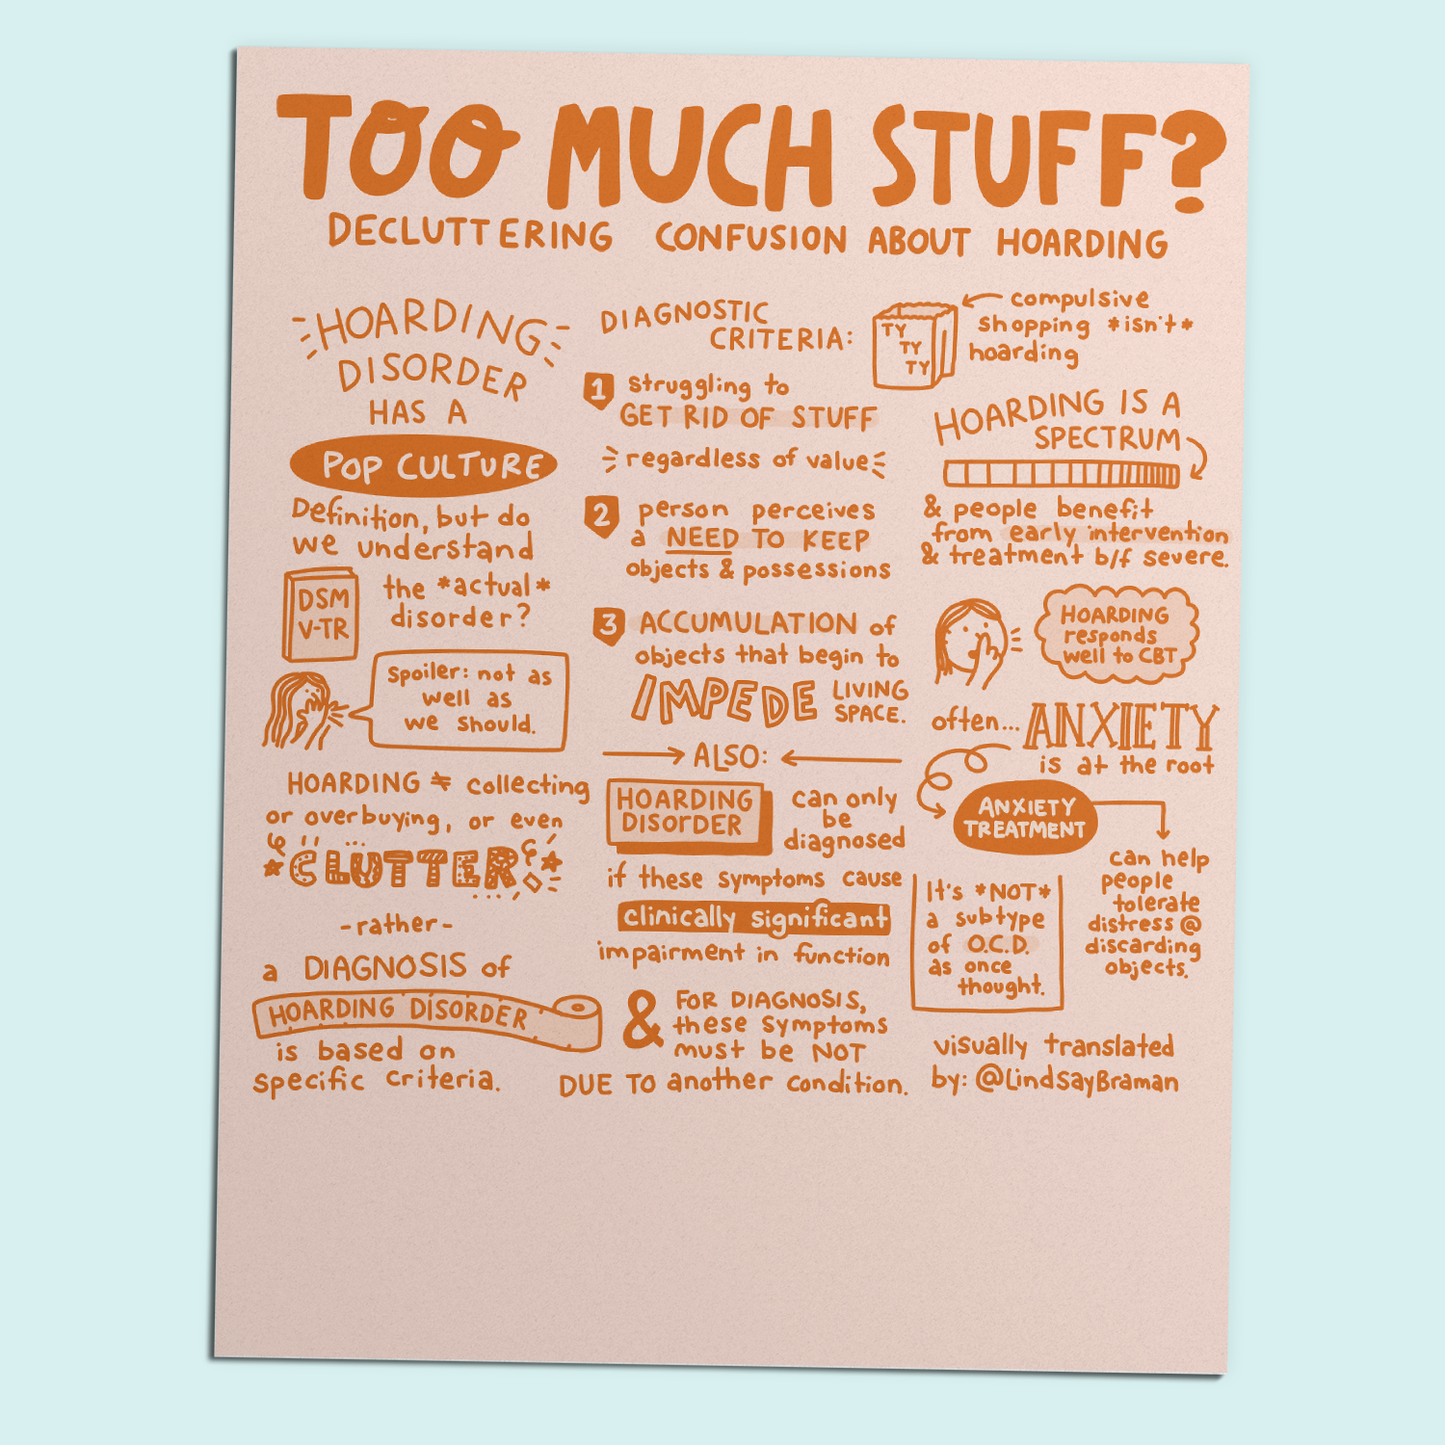 TOO MUCH STUFF?
DECLUTTERING CONFUSION ABOUT HOARDING
HOARDING
DISORDER
HAS A
POP CULTURE
Definition, but do
we understand
DSM
V-TR
the *actual*
disorder?
Spoiler: not as
well as
we should.
HOARDING ≠ collecting
or overbuying, or even
CLUTTER
-rather-
a DIAGNOSIS of
HOARDING DISORDER
is based on
specific criteria.
DIAGNOSTIC
CRITERIA:
1 struggling to
GET RID OF STUFF
regardless of value
2 person perceives
a NEED TO KEEP
objects & possessions
3 ACCUMULATION of
objects that begin to
IMPEDE LIVING
SPACE.
ALSO:
HOARDING
DISORDER
can only
be
diagnosed
if these symptoms cause
clinically significant
impairment in function
& FOR DIAGNOSIS,
these symptoms
must be NOT
DUE TO another condition.
TY
TY
TY
compulsive
shopping *isn't*
hoarding
HOARDING IS A
SPECTRUM
& people benefit
from early intervention
& treatment b/f severe.
HOARDING
responds
well to CBT
often... ANXIETY
is at the root
ANXIETY
TREATMENT
can help
people
tolerate
distress @
discarding
objects.
It's *NOT*
a subtype
of O.C.D.
as once
thought.
visually translated
by: @LindsayBraman